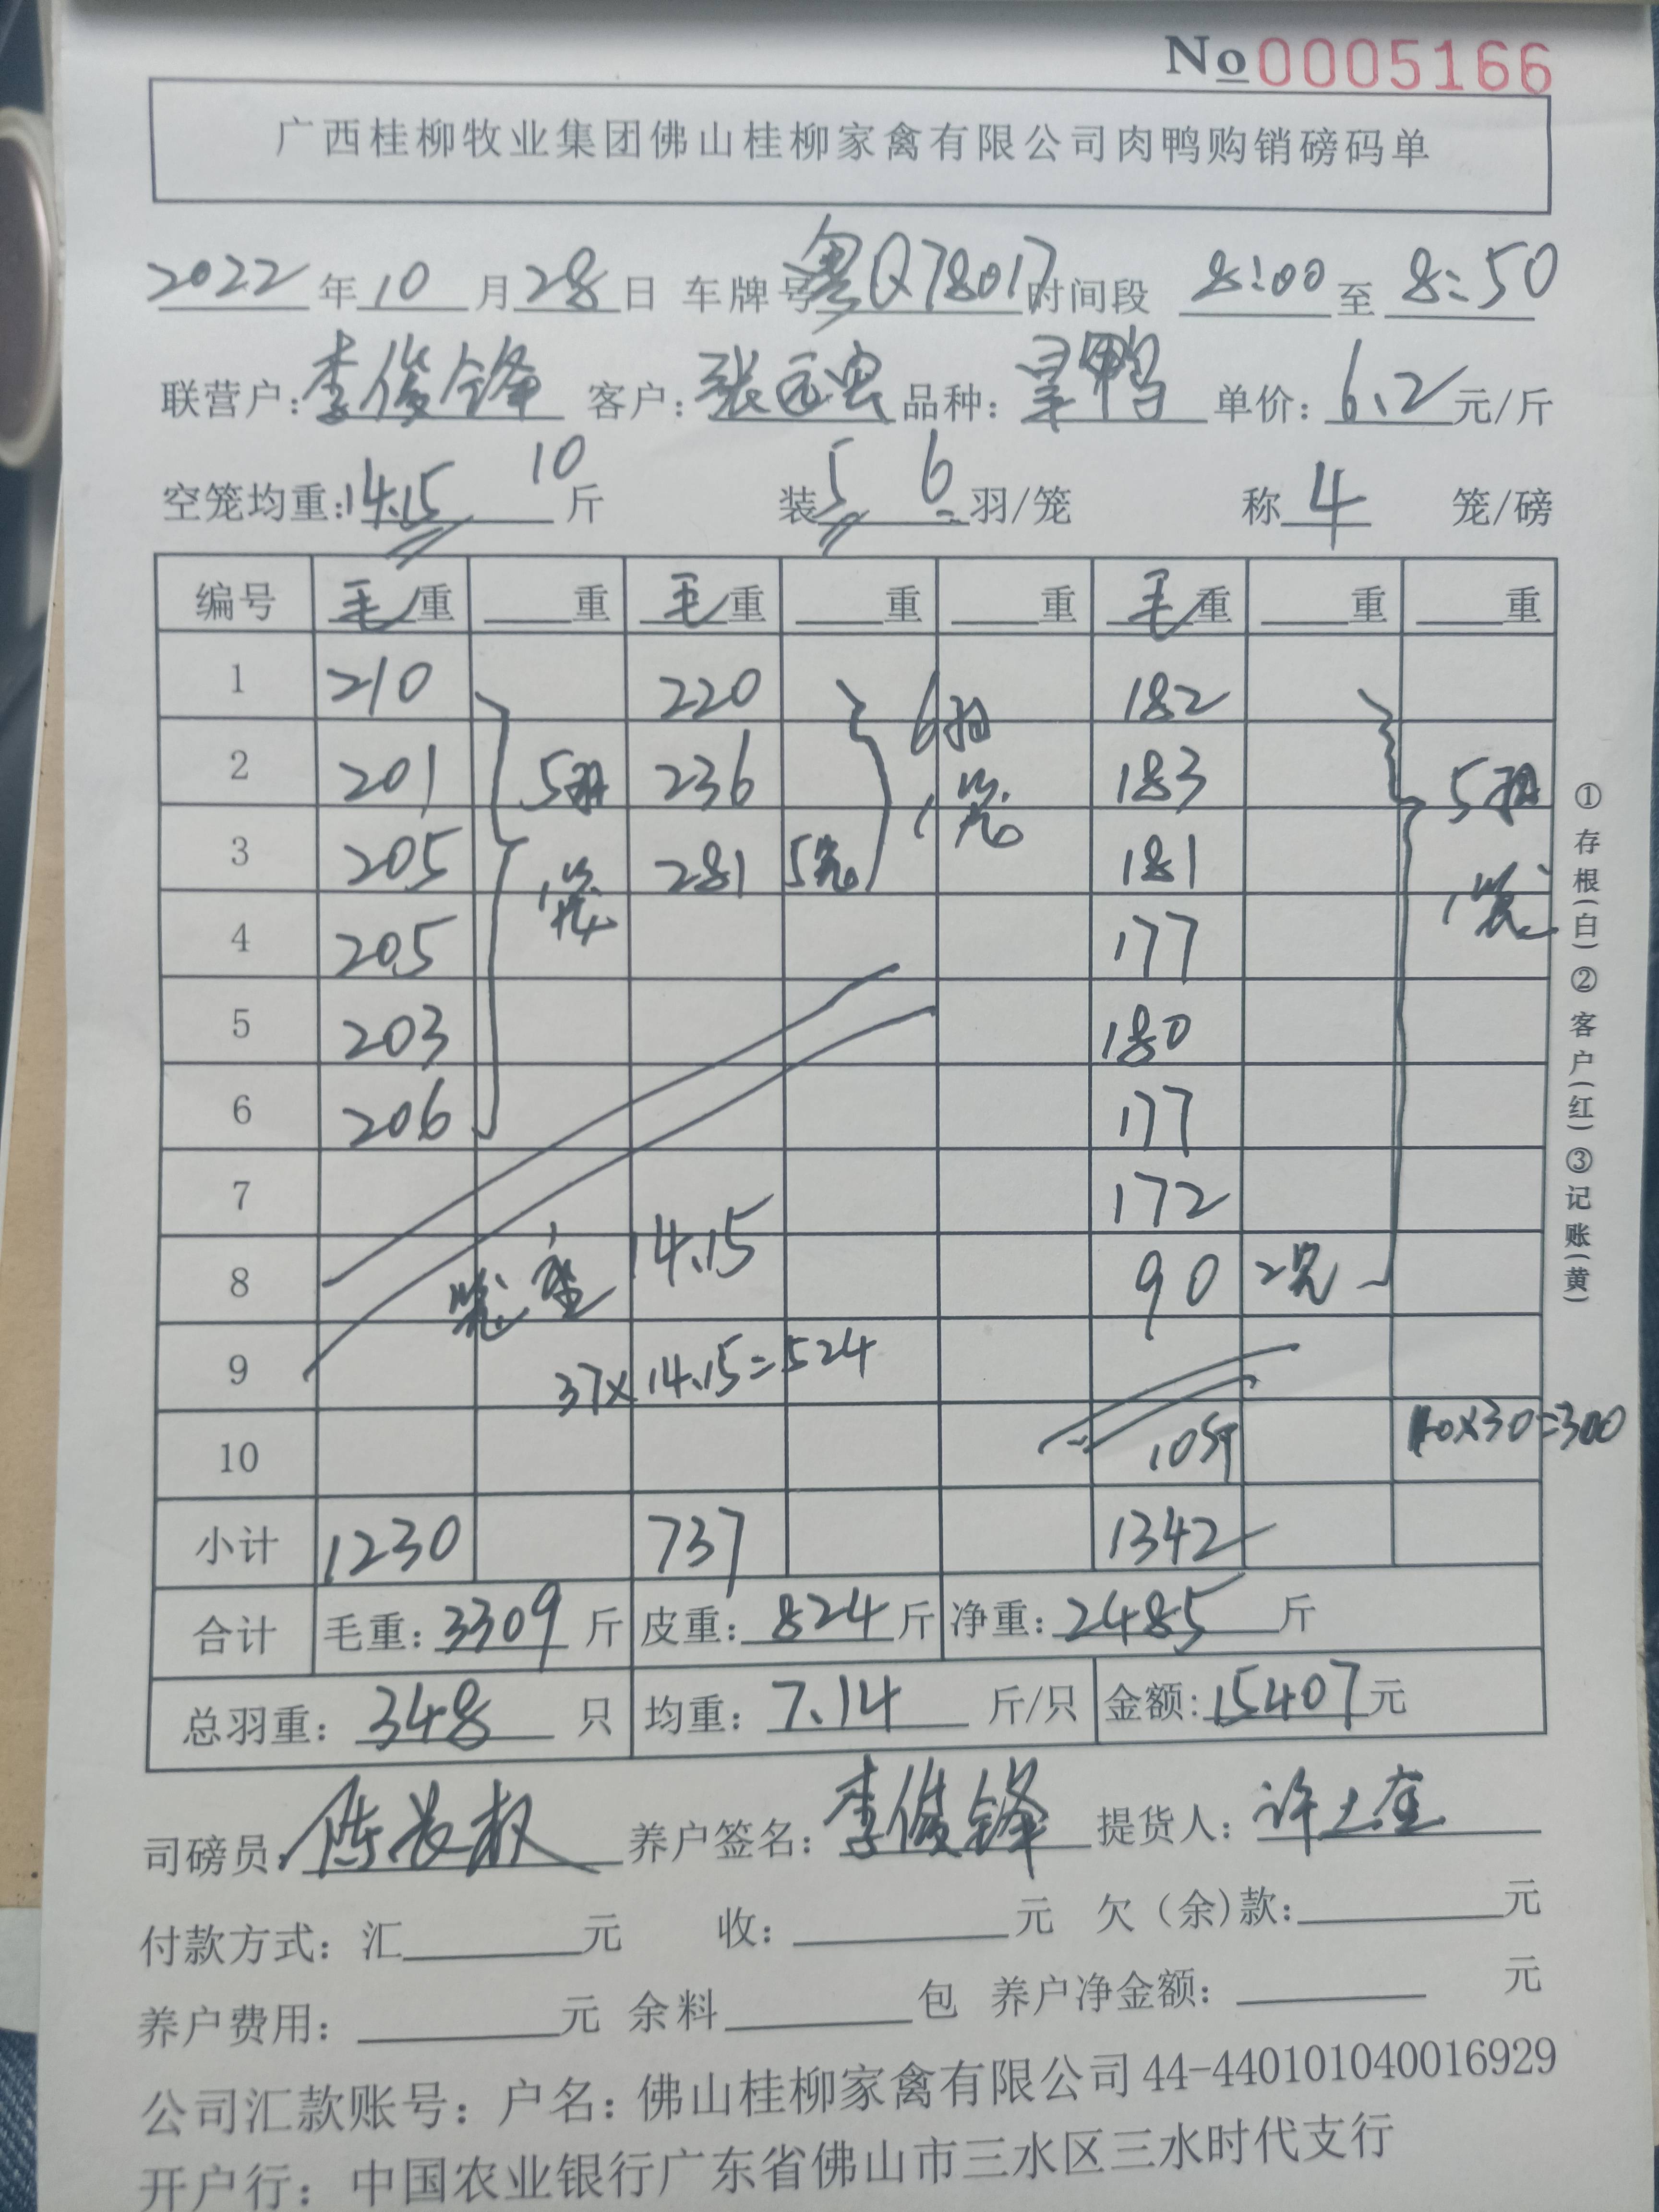 No 0005166
广西桂柳牧业集团佛山桂柳家禽有限公司肉鸭购销磅码单
2022年10月28日 车牌号粤Q78017时间段 8:00至8:50
联营户:李俊锋 客户:张 品种:鸭 单价:6.2元/斤
空笼均重:14.15 10斤 装5 6羽/笼 称4笼/磅
编号 毛重 重 毛重 重 重 毛重 重 重
1 210 220 6羽 182
2 201 5羽 236 1笼 183 5羽
3 205 1笼 281 5笼 181 1笼
4 205 177
5 203 180
6 206 177
7 172
8 笼重 14.15 90 2笼
9 37×14.15=524
10 10斤 10×30=300
小计 1230 737 1342
合计 毛重:3309斤 皮重:824斤 净重:2485斤
总羽重:348只 均重:7.14斤/只 金额:15407元
司磅员:陈 养户签名:李俊锋 提货人:许
付款方式:汇 元 收: 元 欠(余)款: 元
养户费用: 元 余料 包 养户净金额: 元
公司汇款账号:户名:佛山桂柳家禽有限公司44-440101040016929
开户行:中国农业银行广东省佛山市三水区三水时代支行
①存根(白)②客户(红)③记账(黄)